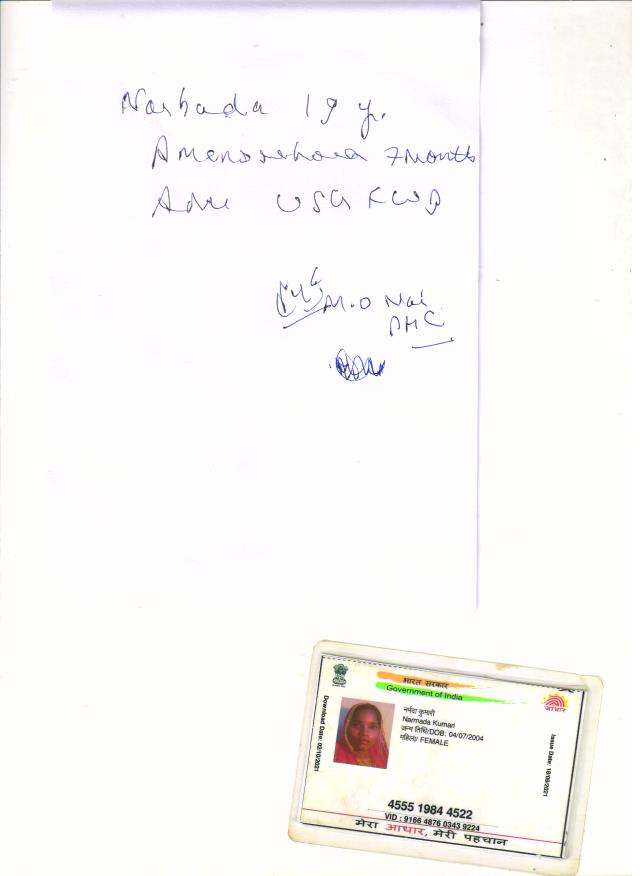 Narbada 19 y.
Amenorrhoea 7 Months
Adv USG FWB
M.O Nai
PHC
भारत सरकार
Government of India
आधार
नर्मदा कुमारी
Narmada Kumari
जन्म तिथि/DOB: 04/07/2004
महिला/ FEMALE
Download Date: 02/10/2021
Issue Date: 18/09/2021
4555 1984 4522
VID : 9166 4876 0343 9224
मेरा आधार, मेरी पहचान